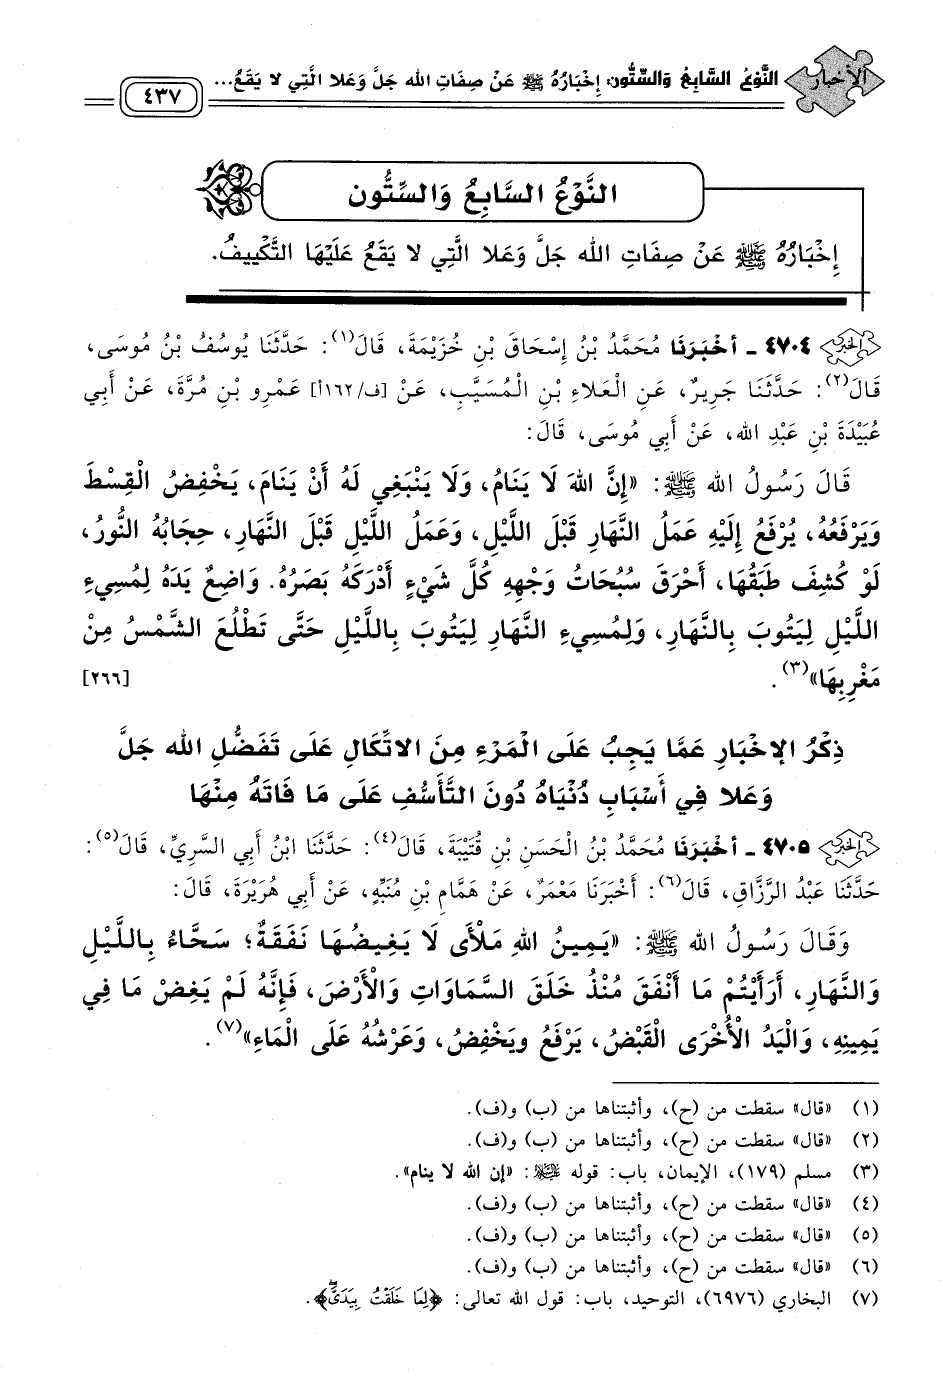 الأخبار
النَّوْعُ السَّابِعُ وَالسِّتُّون: إِخْبَارُهُ ﷺ عَنْ صِفَاتِ الله جَلَّ وَعَلا الَّتِي لا يَقَعُ...
٤٣٧
النَّوْعُ السَّابِعُ وَالسِّتُّون
إِخْبَارُهُ ﷺ عَنْ صِفَاتِ الله جَلَّ وَعَلا الَّتِي لا يَقَعُ عَلَيْهَا التَّكْيِيفُ.
٤٧٠٤ ـ أخْبَرَنَا مُحَمَّدُ بْنُ إِسْحَاقَ بْنِ خُزَيْمَةَ، قَالَ(١): حَدَّثَنَا يُوسُفُ بْنُ مُوسَى،
قَالَ(٢): حَدَّثَنَا جَرِيرٌ، عَنِ الْعَلاءِ بْنِ الْمُسَيَّبِ، عَنْ [ف/١٦٢أ] عَمْرِو بْنِ مُرَّةَ، عَنْ أَبِي
عُبَيْدَةَ بْنِ عَبْدِ الله، عَنْ أَبِي مُوسَى، قَالَ:
قَالَ رَسُولُ الله ﷺ: «إِنَّ اللهَ لَا يَنَامُ، وَلَا يَنْبَغِي لَهُ أَنْ يَنَامَ، يَخْفِضُ الْقِسْطَ
وَيَرْفَعُهُ، يُرْفَعُ إِلَيْهِ عَمَلُ النَّهَارِ قَبْلَ اللَّيْلِ، وَعَمَلُ اللَّيْلِ قَبْلَ النَّهَارِ، حِجَابُهُ النُّورُ،
لَوْ كُشِفَ طَبَقُهَا، أَحْرَقَ سُبُحَاتُ وَجْهِهِ كُلَّ شَيْءٍ أَدْرَكَهُ بَصَرُهُ. وَاضِعٌ يَدَهُ لِمُسِيءِ
اللَّيْلِ لِيَتُوبَ بِالنَّهَارِ، وَلِمُسِيءِ النَّهَارِ لِيَتُوبَ بِاللَّيْلِ حَتَّى تَطْلُعَ الشَّمْسُ مِنْ
مَغْرِبِهَا»(٣). [٢٦٦]
ذِكْرُ الإخْبَارِ عَمَّا يَجِبُ عَلَى الْمَرْءِ مِنَ الاتِّكَالِ عَلَى تَفَضُّلِ الله جَلَّ
وَعَلا فِي أَسْبَابِ دُنْيَاهُ دُونَ التَّأَسُّفِ عَلَى مَا فَاتَهُ مِنْهَا
٤٧٠٥ ـ أخْبَرَنَا مُحَمَّدُ بْنُ الْحَسَنِ بْنِ قُتَيْبَةَ، قَالَ(٤): حَدَّثَنَا ابْنُ أَبِي السَّرِيِّ، قَالَ(٥):
حَدَّثَنَا عَبْدُ الرَّزَّاقِ، قَالَ(٦): أَخْبَرَنَا مَعْمَرٌ، عَنْ هَمَّامِ بْنِ مُنَبِّهٍ، عَنْ أَبِي هُرَيْرَةَ، قَالَ:
وَقَالَ رَسُولُ الله ﷺ: «يَمِينُ اللهِ مَلْأَى لَا يَغِيضُهَا نَفَقَةٌ؛ سَحَّاءُ بِاللَّيْلِ
وَالنَّهَارِ، أَرَأَيْتُمْ مَا أَنْفَقَ مُنْذُ خَلَقَ السَّمَاوَاتِ وَالْأَرْضَ، فَإِنَّهُ لَمْ يَغِضْ مَا فِي
يَمِينِهِ، وَالْيَدُ الْأُخْرَى الْقَبْضُ، يَرْفَعُ ويَخْفِضُ، وَعَرْشُهُ عَلَى الْمَاءِ»(٧).
(١) «قال» سقطت من (ح)، وأثبتناها من (ب) و(ف).
(٢) «قال» سقطت من (ح)، وأثبتناها من (ب) و(ف).
(٣) مسلم (١٧٩)، الإيمان، باب: قوله ﷺ: «إن الله لا ينام».
(٤) «قال» سقطت من (ح)، وأثبتناها من (ب) و(ف).
(٥) «قال» سقطت من (ح)، وأثبتناها من (ب) و(ف).
(٦) «قال» سقطت من (ح)، وأثبتناها من (ب) و(ف).
(٧) البخاري (٦٩٧٦)، التوحيد، باب: قول الله تعالى: ﴿لِمَا خَلَقْتُ بِيَدَيَّ﴾.